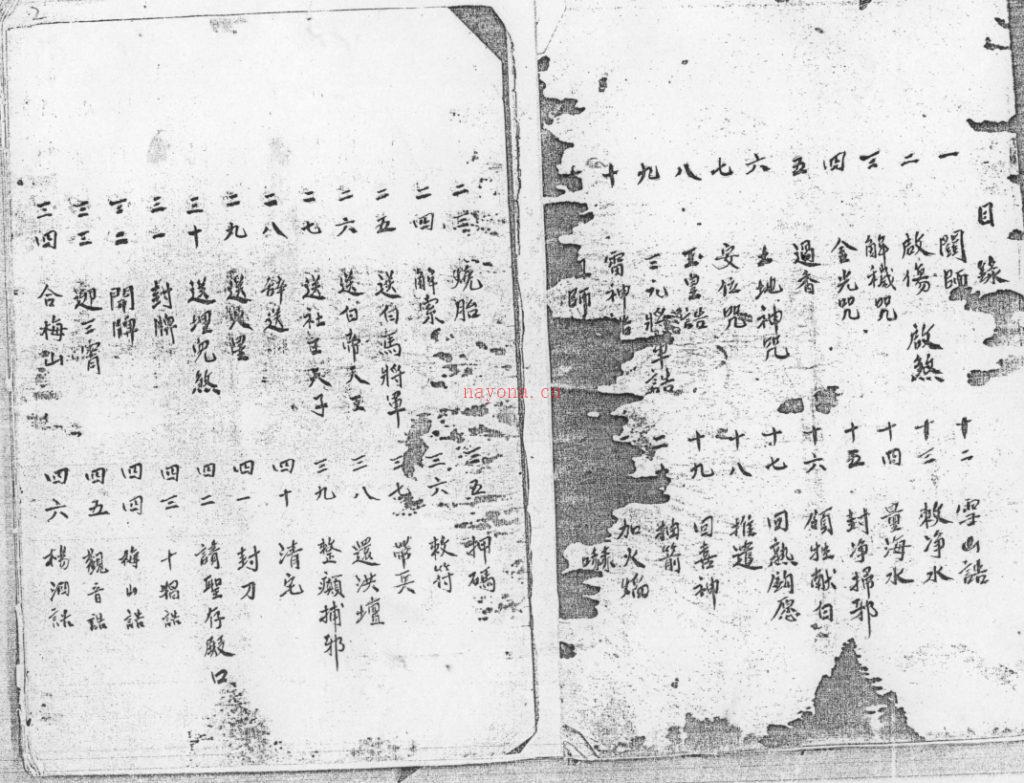 2
目錄
一 閭師
二 啟傷 啟煞
三 解穢咒
四 金光咒
五 過香
六 土地神咒
七 安位咒
八 玉皇誥
九 三元將軍誥
十 雷神
師
十二 雪山誥
十三 敕净水
十四 量海水
十五 封净掃邪
十六 領牲献白
十七 回熟鈎愿
十八 推遣
十九 回喜神
二十 抽箭
加火焰
二三 燒胎
二四 解索
二五 送白馬將軍
二六 送白帝天王
二七 送社主天子
二八 辞送
二九 送火星
三十 送埋兇煞
三一 封牌
三二 開牌
三三 迎三霄
三四 合梅山
三五 押碼
三六 敕符
三七 帶兵
三八 還洪壇
三九 整癲捕邪
四十 清宅
四一 封刀
四二 請聖存殿口
四三 十獁誥
四四 梅山誥
四五 觀音誥
四六 楊泗誥
nayona.cn